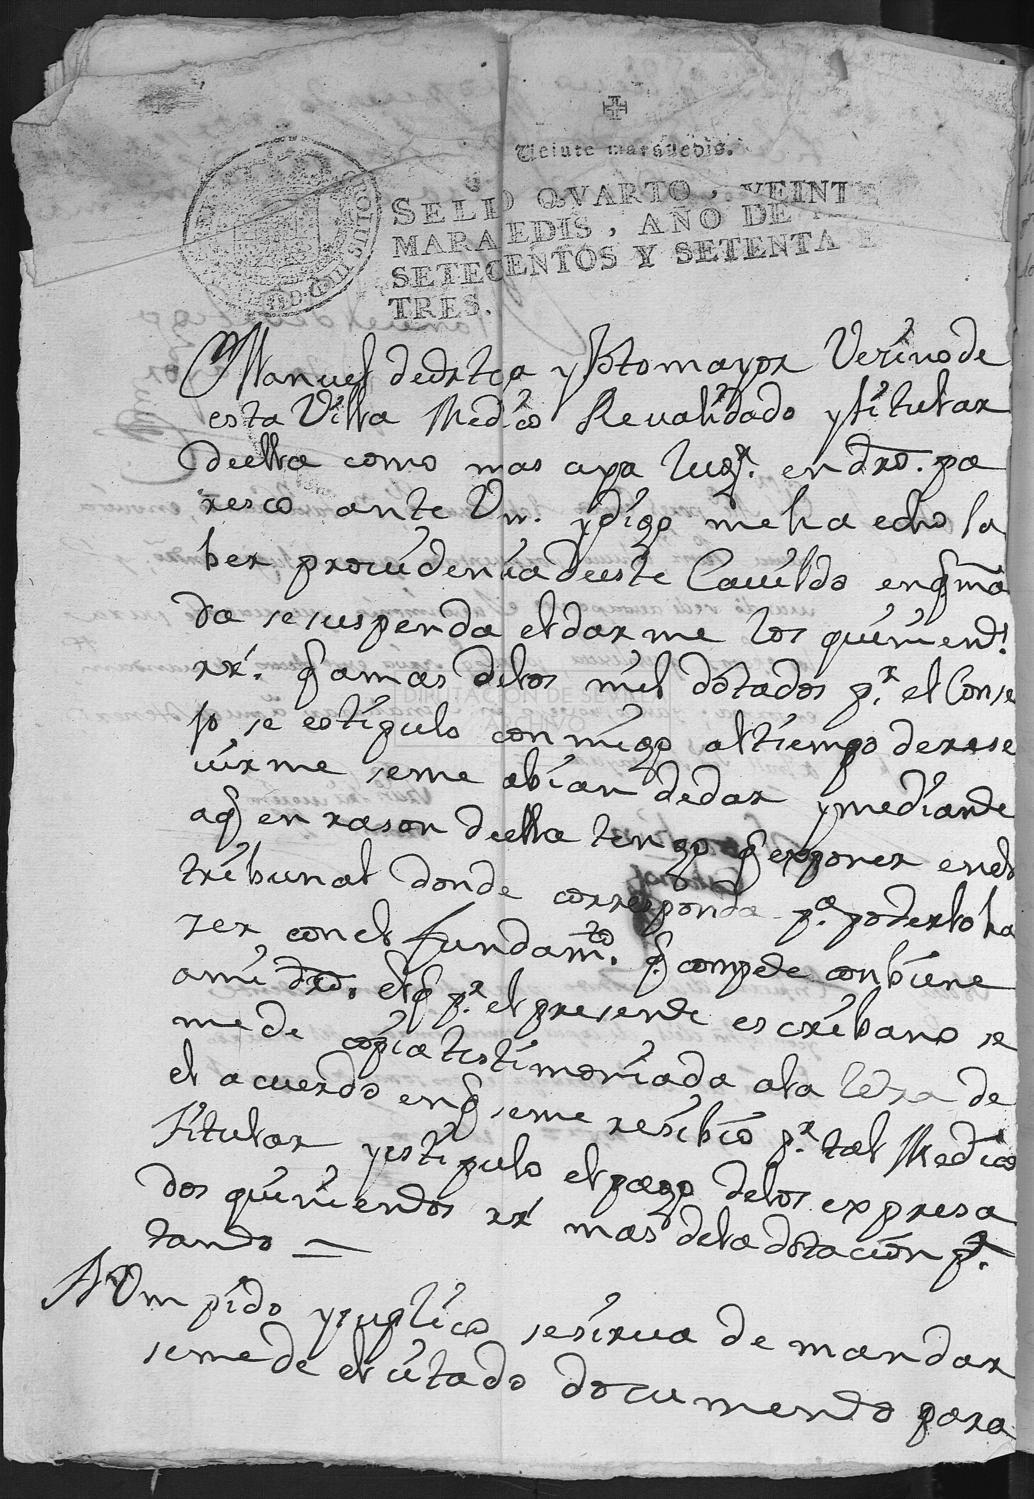 Veinte maravedis.
SELLO QVARTO, VEINTE
MARAVEDIS, AÑO DE MIL
SETECENTOS Y SETENTA E
TRES.
Manuel de Ortega y Sotomayor Vezino de
esta Villa Medico Revalidado y titular
de ella como mas aya lugr. en dro. pa
resco ante Vm. y digo me ha echo sa
ber providencia de este Cavildo en q. man
da se suspenda el darme los quinients.
rrs. q amas delos mil dotados pr. el Conse
jo, se estipulo conmigo al tiempo de rese
uirme seme abian de dar y mediante
aq en rason de ella tengo q exponer enel
tribunal donde corresponda pa. poderlo ha
ser con el fundamto. q. compete conbiene
ami dro. el q pr. el presente escribano se
me de copia testimoniada ala letra de
el acuerdo en q seme resibio pr. tal Medico
titular y estipulo el pago delos expresa
dos quinientos rrs mas dela dotacion pr.
tanto =
A Vm pido y suplico se sirva de mandar
seme de el citado documento para
DIPUTACION DE SEVILLA
ARCHIVO